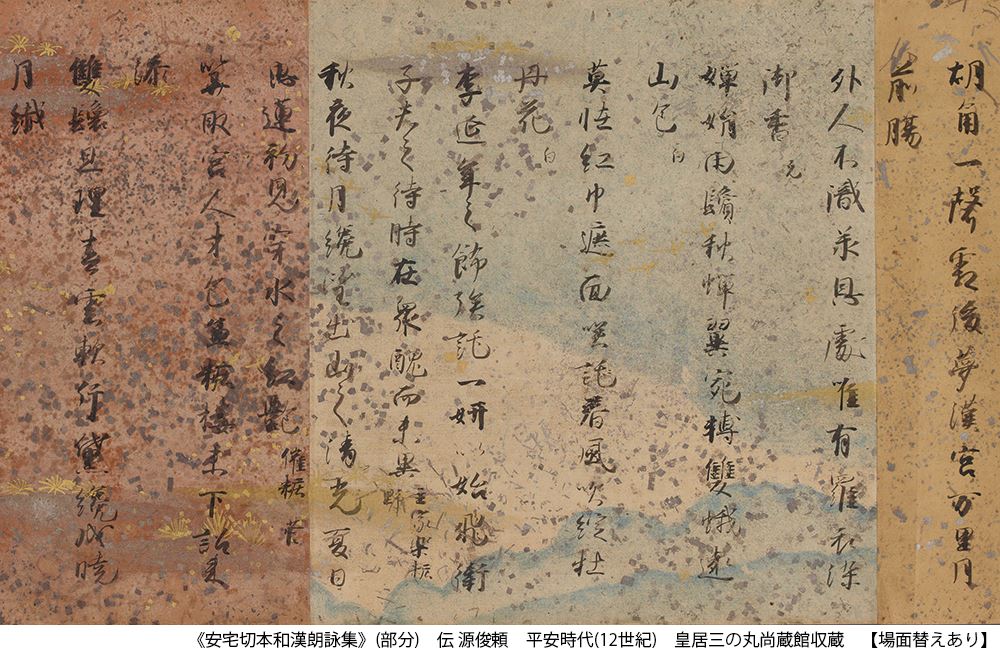 胡角一聲霜後夢漢宮万里月
前腸
外人不識承恩處唯有羅衣染
御香 元
嬋娟両鬢秋蝉翼宛轉雙蛾遠
山色 白
莫怪紅巾遮面咲託春風吹綻牡
丹花 白
李延年之餝族託一妍以始飛衛
子夫之待時在衆醜而未異
秋夜待月纔望出山之清光夏日
思蓮初見穿水之紅艶 催粧 菅
算取宮人才色兼粧樓未下詔来
添
雙鬟且理春雲軟片黛纔成暁
月纖
《安宅切本和漢朗詠集》(部分)　伝 源俊頼　平安時代(12世紀)　皇居三の丸尚蔵館収蔵　【場面替えあり】